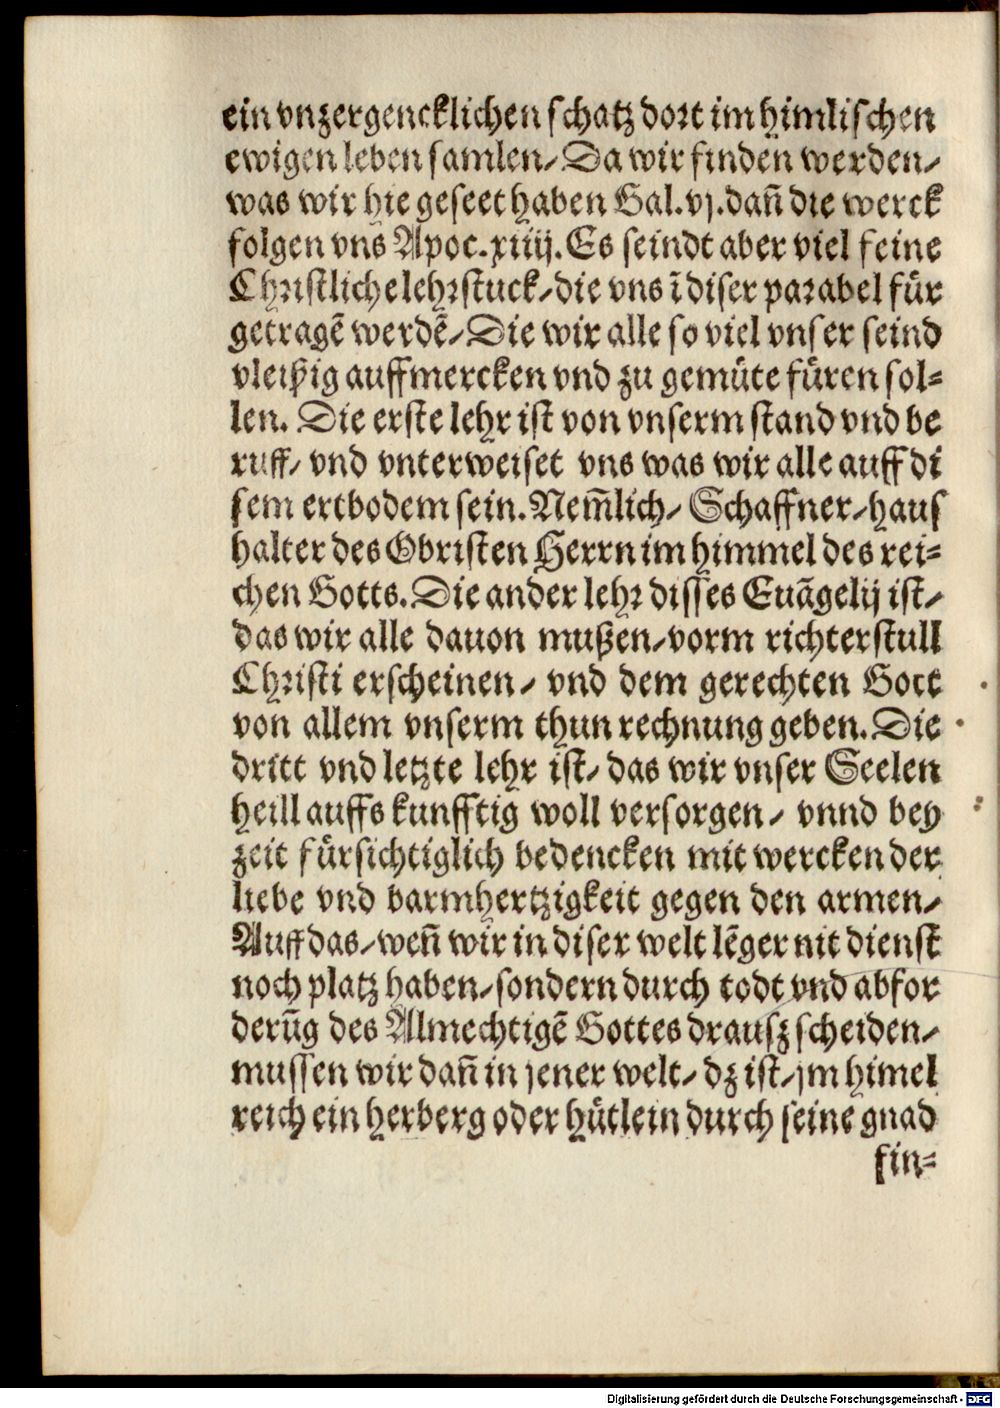 ein vnzergencklichen schatz dort im himlischen
ewigen leben samlen/ Da wir finden werden/
was wir hie geseet haben Gal. vj. dañ die werck
folgen vns Apoc. xiiij. Es seindt aber viel feine
Christliche lehrstuck/ die vns ĩ diser parabel für
getragẽ werdẽ/ Die wir alle so viel vnser seind
vleißig auffmercken vnd zu gemüte füren sol-
len. Die erste lehr ist von vnserm stand vnd be
ruff/ vnd vnterweiset vns was wir alle auff di
sem ertbodem sein. Nem̃lich/ Schaffner/ haus
halter des Obristen Herrn im himmel des rei-
chen Gotts. Die ander lehr disses Euãgelij ist/
das wir alle dauon mußen/ vorm richterstull
Christi erscheinen/ vnd dem gerechten Gott
von allem vnserm thun rechnung geben. Die
dritt vnd letzte lehr ist/ das wir vnser Seelen
heill auffs kunfftig woll versorgen/ vnnd bey
zeit fürsichtiglich bedencken mit wercken der
liebe vnd barmhertzigkeit gegen den armen/
Auff das/ weñ wir in diser welt lẽger nit dienst
noch platz haben/ sondern durch todt vnd abfor
derũg des Almechtigẽ Gottes drausz scheiden/
mussen wir dañ in jener welt/ dz ist/ jm himel
reich ein herberg oder hütlein durch seine gnad
fin-
Digitalisierung gefördert durch die Deutsche Forschungsgemeinschaft - DFG